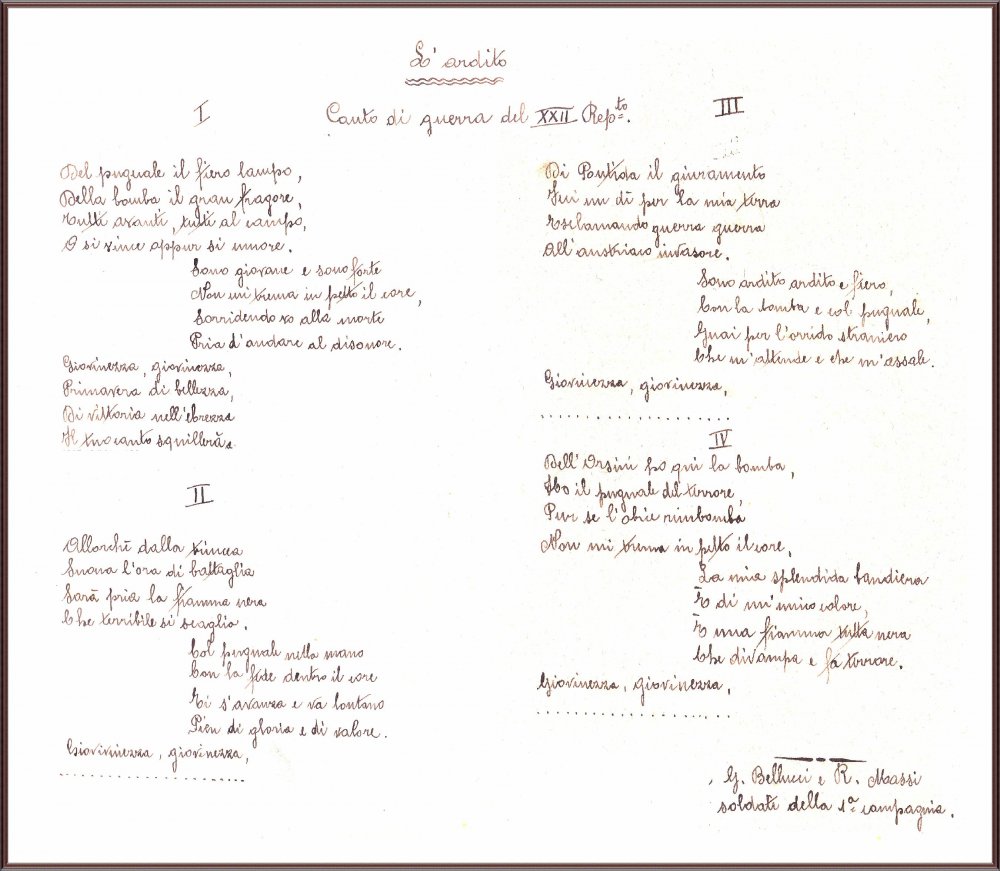 L'ardito
Canto di guerra del XXII Rep.to
I
Del pugnale il fiero lampo,
Della bomba il gran fragore,
Tutti avanti, tutti al campo,
O si vince oppur si muore.
Sono giovane e sono forte
Non mi trema in petto il core,
Sorridendo vo alla morte
Pria d'andare al disonore.
Giovinezza, giovinezza,
Primavera di bellezza,
Di vittoria nell'ebrezza
Il tuo canto squillerà.
II
Allorchè dalla trincea
Suona l'ora di battaglia
Sarà pria la fiamma nera
Che terribile si scaglia.
Col pugnale nella mano
Con la fede dentro il core
Ei s'avanza e va lontano
Pien di gloria e di valore.
Giovinezza, giovinezza,
....................
III
Di Pontida il giuramento
Fui un dì per la mia terra
Esclamando guerra guerra
All'austriaco invasore.
Sono ardito ardito e fiero,
Con la bomba e col pugnale,
Guai per l'orrido straniero
Che m'attende e che m'assale.
Giovinezza, giovinezza,
....................
IV
Dell'Orsini ho qui la bomba,
Ho il pugnale del terrore,
Pur se l'obice rimbomba
Non mi trema in petto il core,
La mia splendida bandiera
È di un'unico colore,
È una fiamma tutta nera
Che divampa e fa terrore.
Giovinezza, giovinezza,
....................
G. Bellucci e R. Massi
soldati della 1ª compagnia.